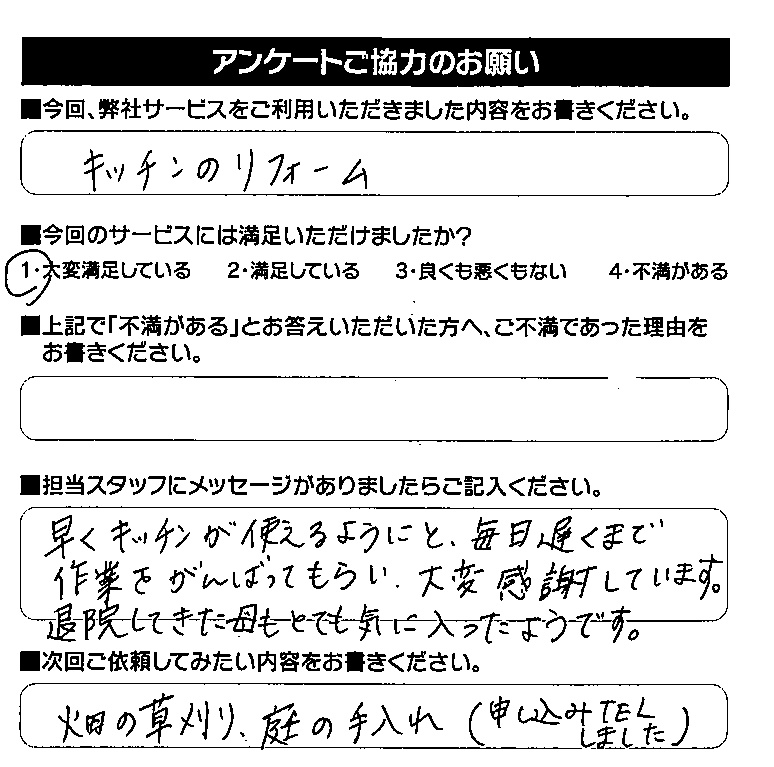 アンケートご協力のお願い
■今回、弊社サービスをご利用いただきました内容をお書きください。
キッチンのリフォーム
■今回のサービスには満足いただけましたか?
1・大変満足している 2・満足している 3・良くも悪くもない 4・不満がある
■上記で「不満がある」とお答えいただいた方へ、ご不満であった理由を
お書きください。
■担当スタッフにメッセージがありましたらご記入ください。
早くキッチンが使えるようにと、毎日遅くまで
作業をがんばってもらい、大変感謝しています。
退院してきた母もとても気に入ったようです。
■次回ご依頼してみたい内容をお書きください。
畑の草刈り、庭の手入れ (申し込みTEL
しました)